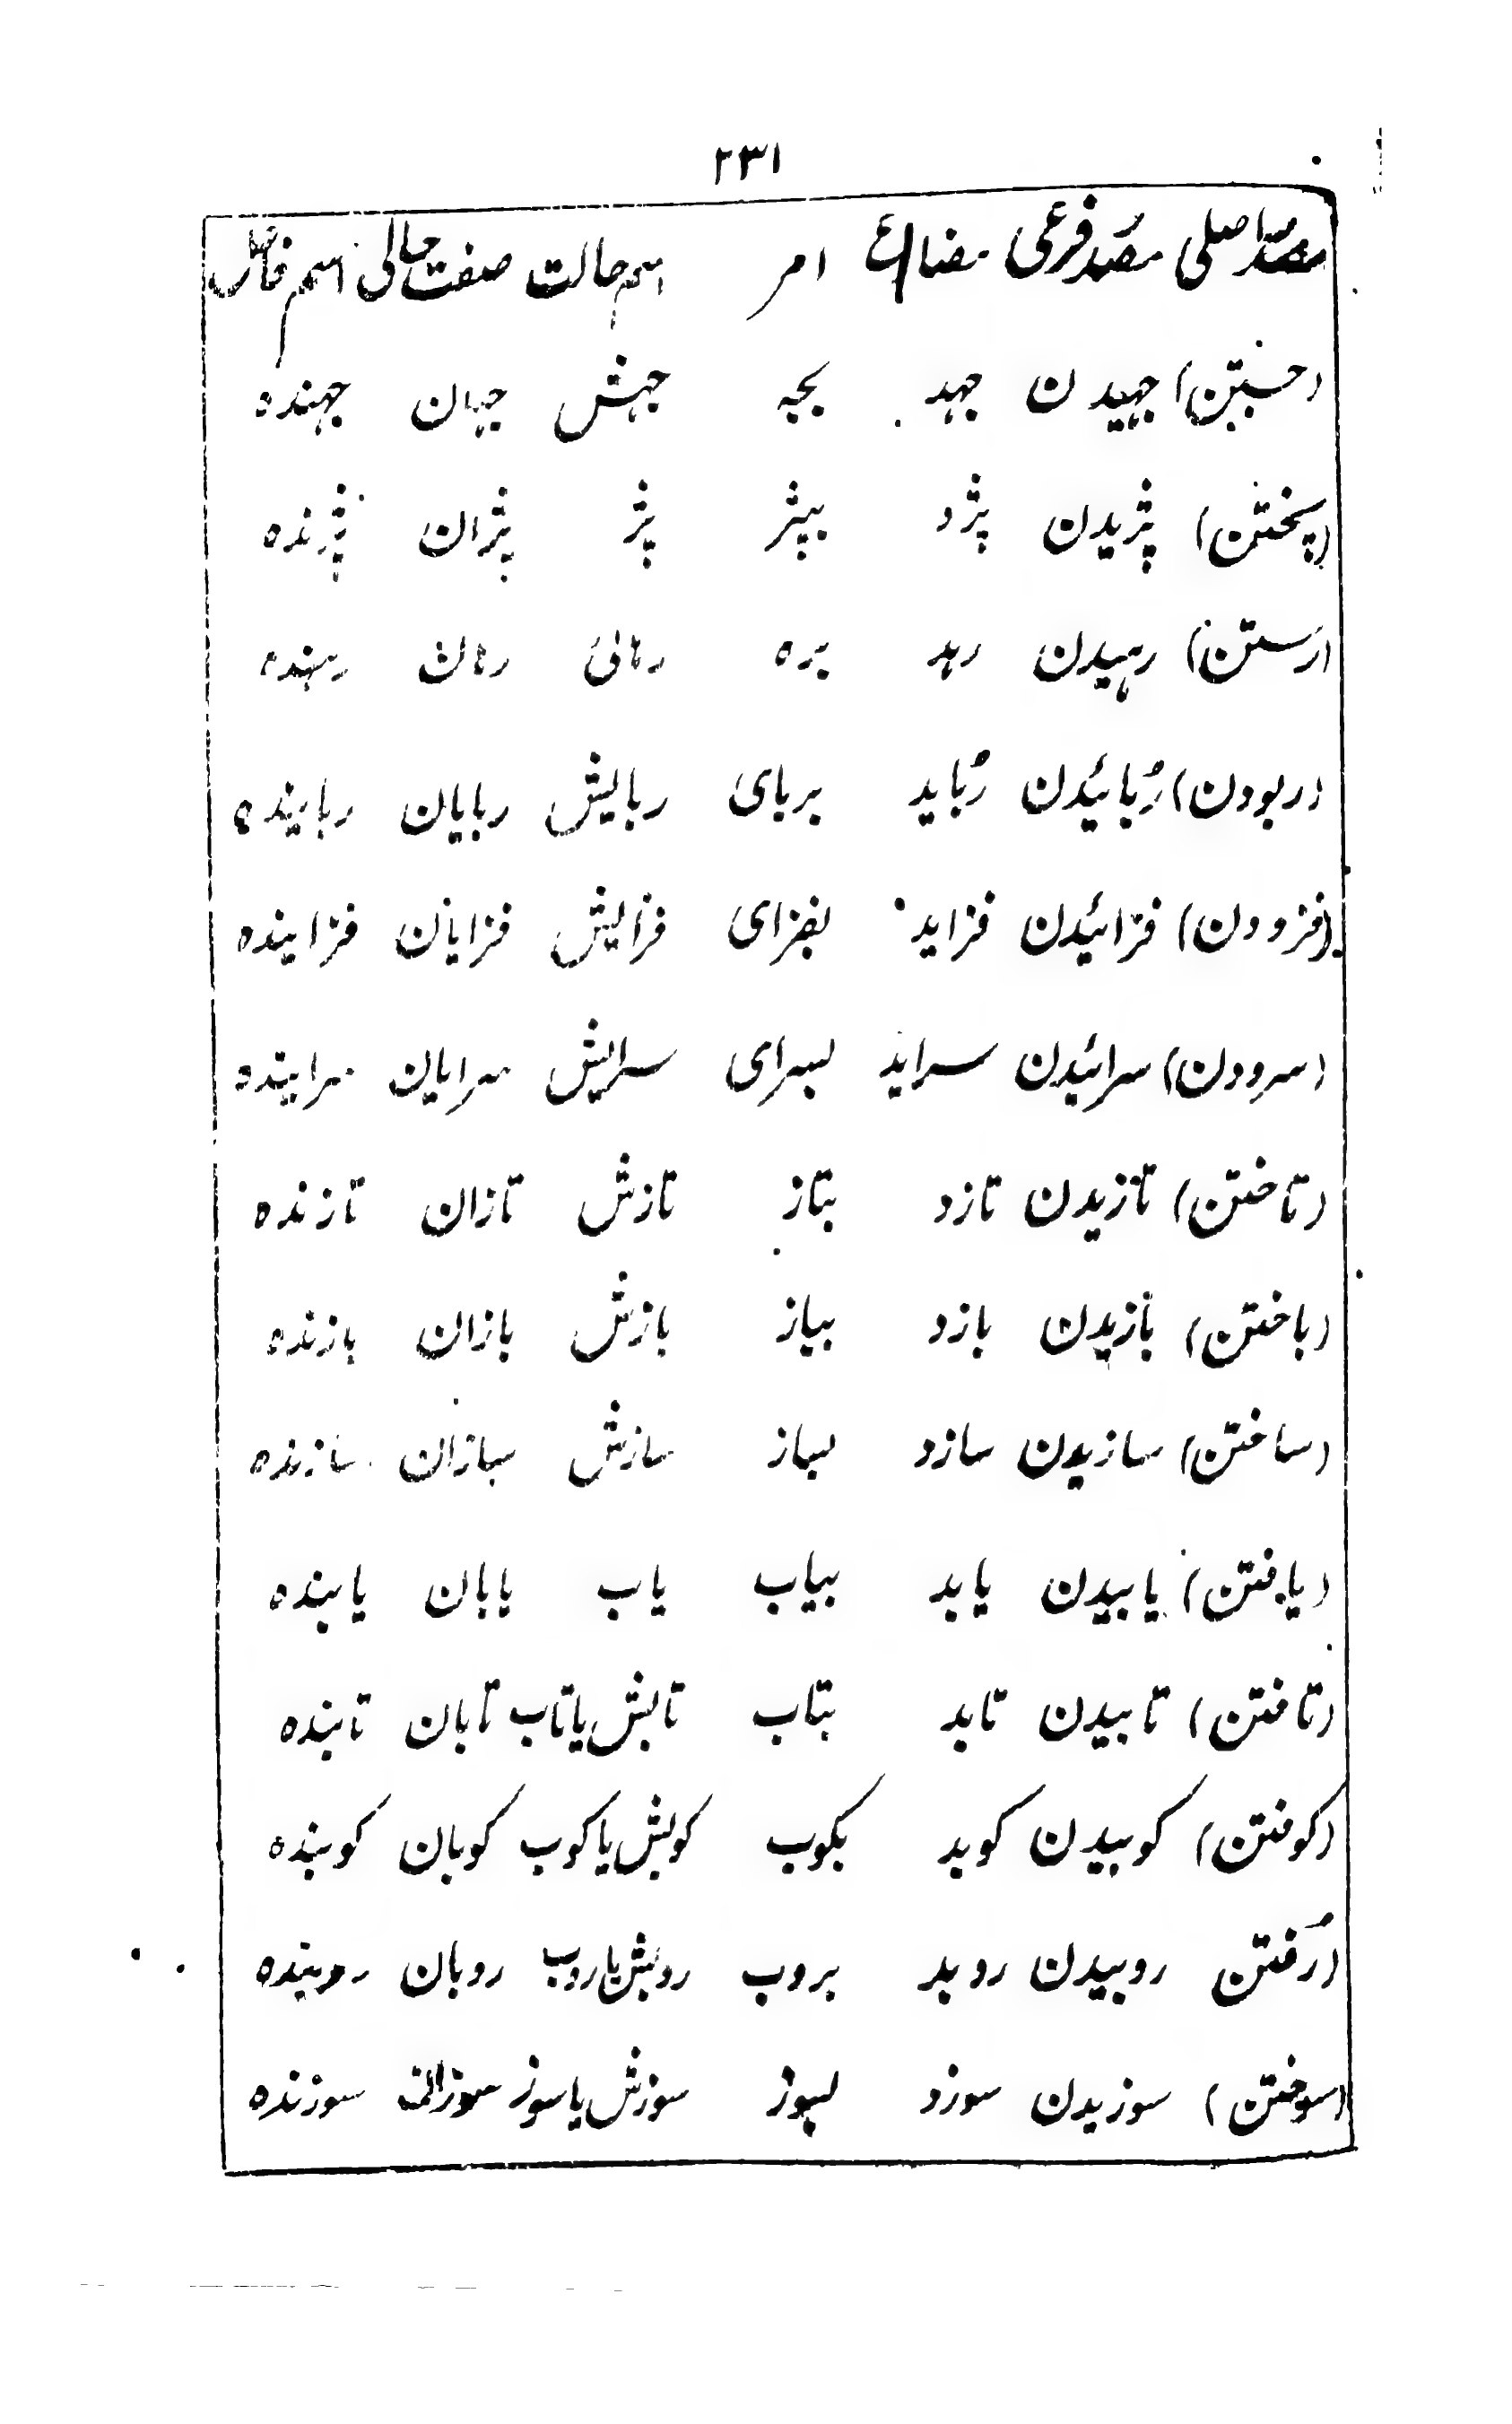 ۲۳۱
مصدر اصلی مصدر فرعی مضارع امر اسم حالت صفت حالی اسم فاعل
(جستن) جہیدن جہد بجہ جہش جہان جہندہ
(پختن) پژیدن پژد بپژ پژ پژان پژندہ
(رستن) رہیدن رہد برہ رہائی رہان رہندہ
(ربودن) رُبائیدن رُباید بربای ربایش ربایان ربایندہ
(فزودن) فزائیدن فزاید بفزای فزایش فزایان فزایندہ
(سرودن) سرائیدن سراید بسرای سرایش سرایان سرایندہ
(تاختن) تازیدن تازد بتاز تازش تازان تازندہ
(باختن) بازیدن بازد بباز بازش بازان بازندہ
(ساختن) سازیدن سازد بساز سازش سازان سازندہ
(یافتن) یابیدن یابد بیاب یاب یابان یابندہ
(تافتن) تابیدن تابد بتاب تابش یا تاب تابان تابندہ
(کوفتن) کوبیدن کوبد بکوب کوبش یا کوب کوبان کوبندہ
(رُفتن روبیدن روبد بروب روبش یا روب روبان روبندہ
(سوختن) سوزیدن سوزد بسوز سوزش یا سوز سوزان سوزندہ